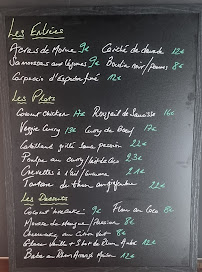 Les Entrées
Acras de Morue 9€ Ceviche de daurade 12€
Samoussas aux légumes 9€ Boudin noir/pommes 8€
Carpaccio d'espadon fumé 12€
Les Plats
Coconut chicken 17€ Rougail de Saucisse 16€
Veggie Curry 13€ Curry de Boeuf 17€
Cabillaud grillé sauce passion 22€
Poulpe au curry/lait de Coco 23€
Crevettes à l'ail/
Tartare de thon 22€
Les Desserts
Coconut 9€ Flan au Coco 8€
Mousse de mangue/Passion 8€
Cheesecake au Citron Vert 8€
Glace Vanille + Shot de Rhum Ambré 12€
Baba au Rhum Arrangé Maison 12€